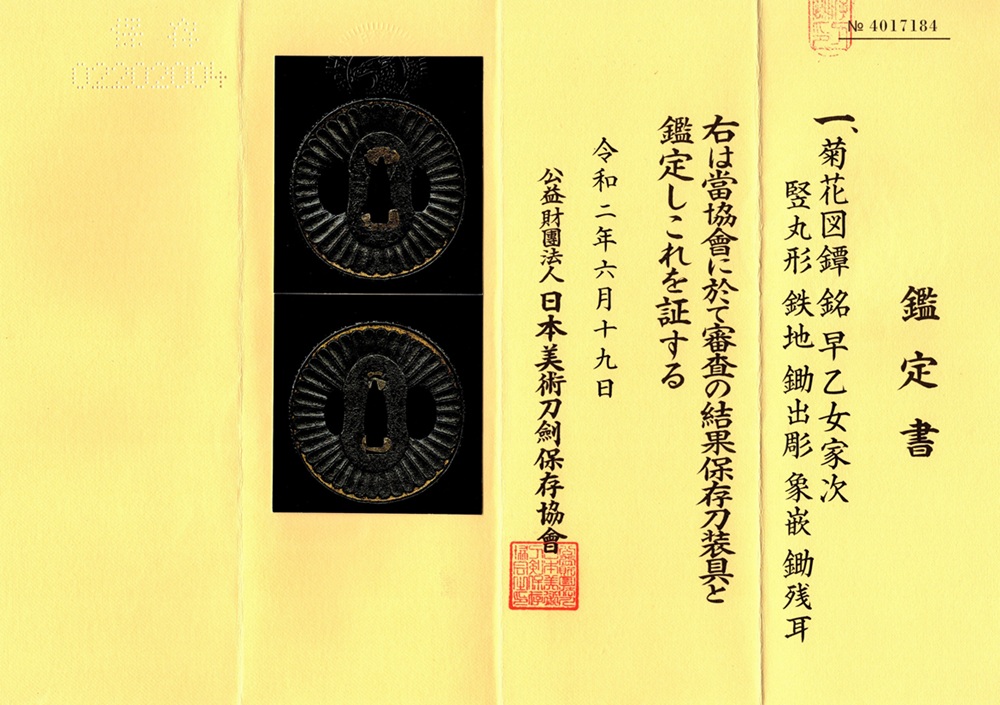 № 4017184
鑑定書
一、菊花図鐔 銘 早乙女家次
竪丸形 鉄地 鋤出彫 象嵌 鋤残耳
右は當協會に於て審査の結果保存刀装具と
鑑定しこれを証する
令和二年六月十九日
公益財團法人 日本美術刀劍保存協會
保存
02202004